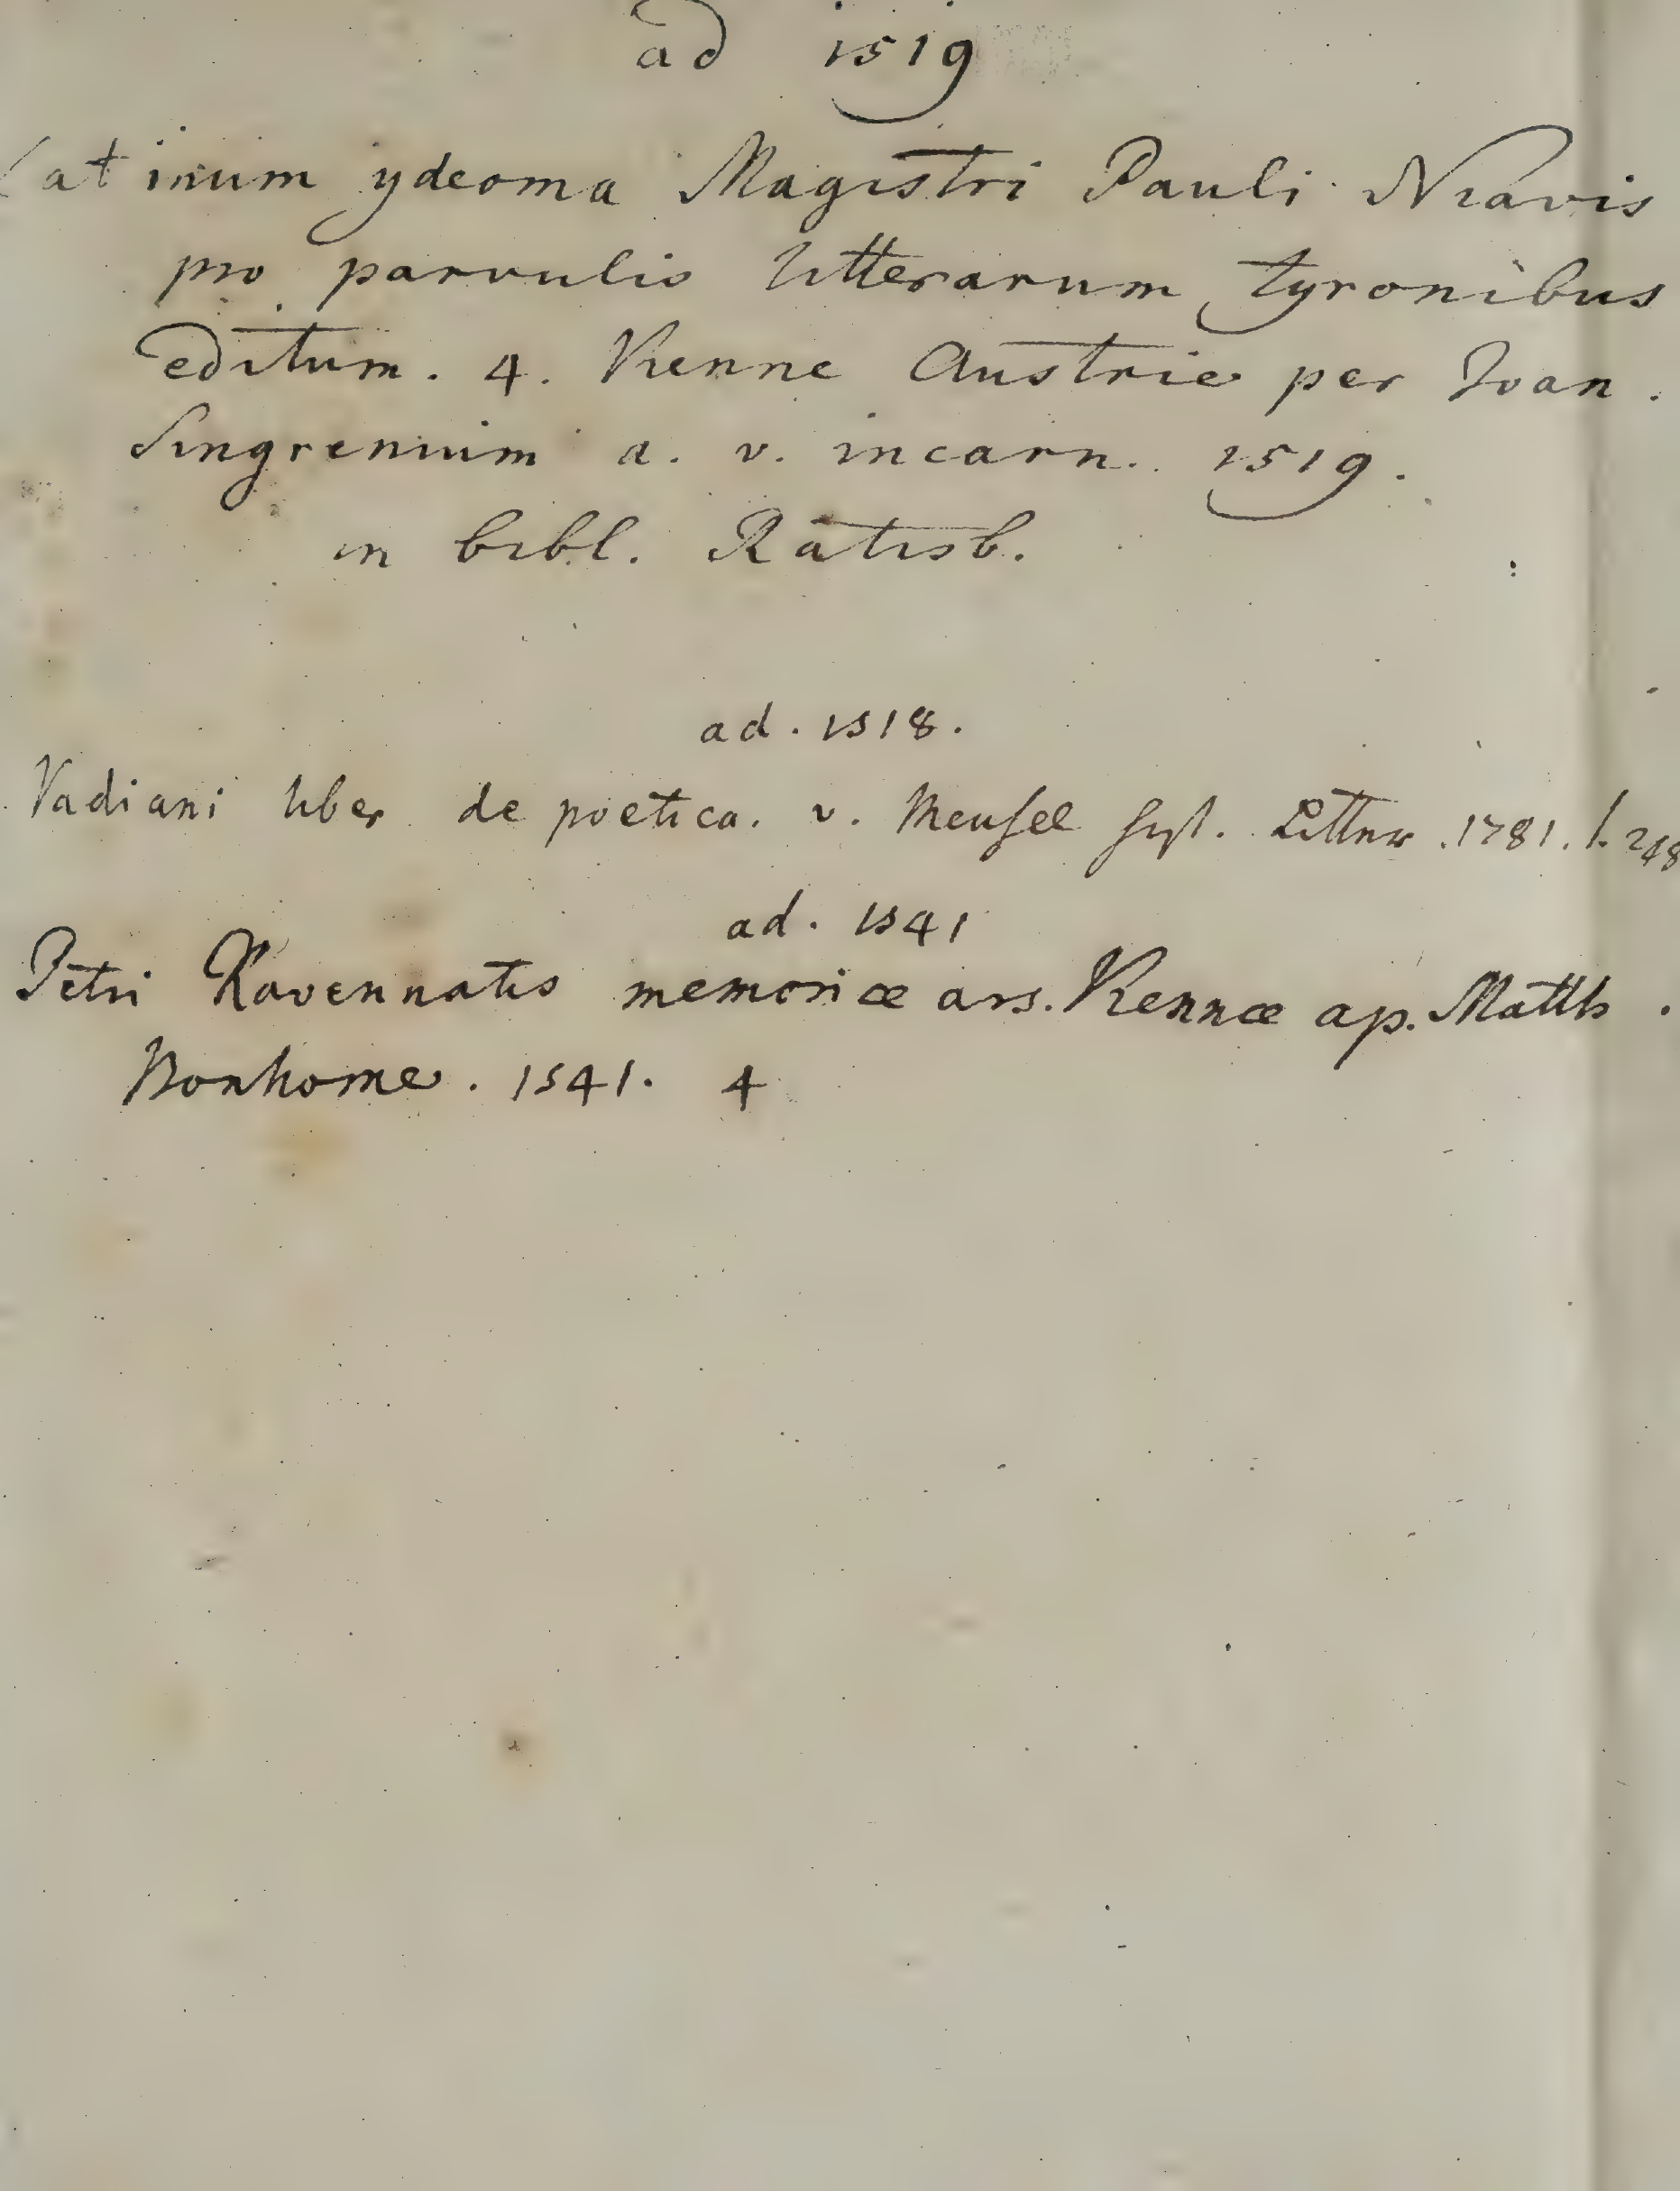 ad 1519
Latinum ydeoma Magistri Pauli Niavis
pro parvulis litterarum tyronibus
editum. 4. Vienne Austrie per Joan.
Singrenium a. v. incarn. 1519.
in bibl. Ratisb.
ad. 1518.
Vadiani liber de poetica. v. Meusel hist. Litter. 1781. 248
ad. 1541
Petri Ravennatis memoriæ ars. Viennæ ap. Matth.
Bonhome. 1541. 4